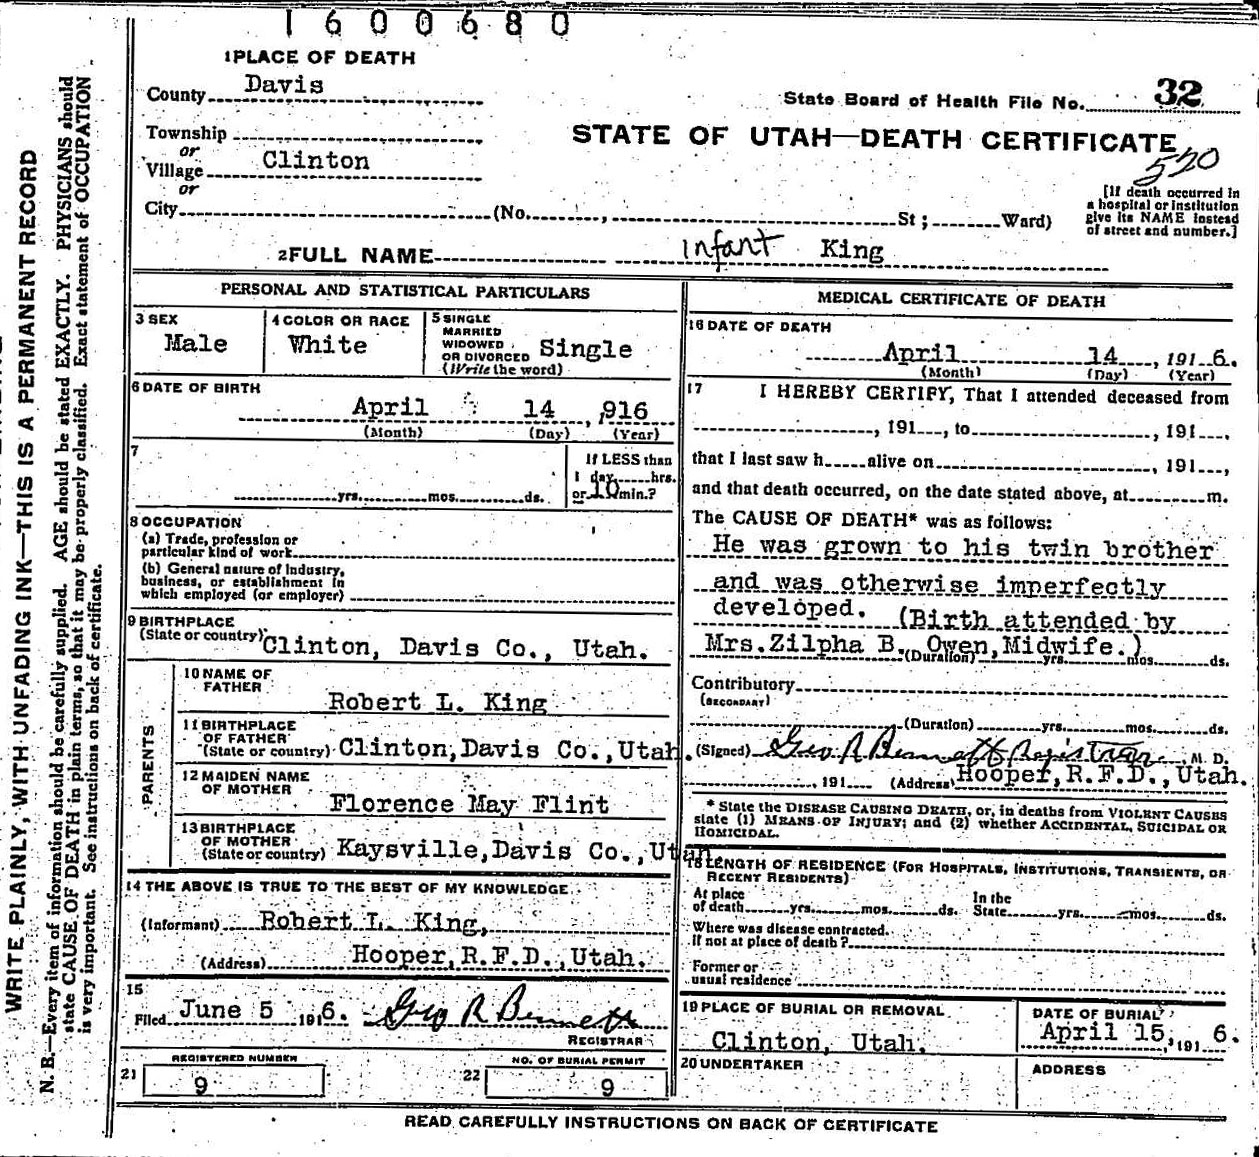 1600680
1 PLACE OF DEATH
County Davis
State Board of Health File No. 32
Township
or
Village Clinton
or
STATE OF UTAH—DEATH CERTIFICATE
520
City (No. , St; Ward)
[If death occurred in
a hospital or institution
give its NAME instead
of street and number.]
2 FULL NAME Infant King
PERSONAL AND STATISTICAL PARTICULARS
3 SEX
Male
4 COLOR OR RACE
White
5 SINGLE
MARRIED
WIDOWED
OR DIVORCED
(Write the word)
Single
6 DATE OF BIRTH
April 14, 916
(Month) (Day) (Year)
7
yrs. mos. ds.
If LESS than
1 day hrs.
or 10 min.?
8 OCCUPATION
(a) Trade, profession or
particular kind of work
(b) General nature of Industry,
business, or establishment in
which employed (or employer)
9 BIRTHPLACE
(State or country) Clinton, Davis Co., Utah.
PARENTS
10 NAME OF
FATHER
Robert L. King
11 BIRTHPLACE
OF FATHER
(State or country) Clinton, Davis Co., Utah.
12 MAIDEN NAME
OF MOTHER
Florence May Flint
13 BIRTHPLACE
OF MOTHER
(State or country) Kaysville, Davis Co., Utah.
14 THE ABOVE IS TRUE TO THE BEST OF MY KNOWLEDGE
(Informant) Robert L. King,
(Address) Hooper, R.F.D., Utah.
15
Filed June 5 1916. Geo R Bennett
REGISTRAR
REGISTERED NUMBER
21 9
NO. OF BURIAL PERMIT
22 9
MEDICAL CERTIFICATE OF DEATH
16 DATE OF DEATH
April 14, 191 6.
(Month) (Day) (Year)
17 I HEREBY CERTIFY, That I attended deceased from
, 191 , to , 191 ,
that I last saw h alive on , 191 ,
and that death occurred, on the date stated above, at m.
The CAUSE OF DEATH* was as follows:
He was grown to his twin brother
and was otherwise imperfectly
developed. (Birth attended by
Mrs. Zilpha B. Owen, Midwife.)
(Duration) yrs. mos. ds.
Contributory
(SECONDARY)
(Duration) yrs. mos. ds.
(Signed) Geo R Bennett Registrar, M. D.
, 191 (Address) Hooper, R.F.D., Utah.
* State the DISEASE CAUSING DEATH, or, in deaths from VIOLENT CAUSES
state (1) MEANS OF INJURY; and (2) whether ACCIDENTAL, SUICIDAL OR
HOMICIDAL.
18 LENGTH OF RESIDENCE (FOR HOSPITALS, INSTITUTIONS, TRANSIENTS, OR
RECENT RESIDENTS)
At place
of death yrs. mos. ds.
In the
State yrs. mos. ds.
Where was disease contracted.
If not at place of death?
Former or
usual residence
19 PLACE OF BURIAL OR REMOVAL
Clinton, Utah.
DATE OF BURIAL
April 15, 191 6.
20 UNDERTAKER
ADDRESS
READ CAREFULLY INSTRUCTIONS ON BACK OF CERTIFICATE
WRITE PLAINLY, WITH UNFADING INK—THIS IS A PERMANENT RECORD
N. B.—Every item of information should be carefully supplied. AGE should be stated EXACTLY. PHYSICIANS should
state CAUSE OF DEATH in plain terms, so that it may be properly classified. Exact statement of OCCUPATION
is very important. See instructions on back of certificate.